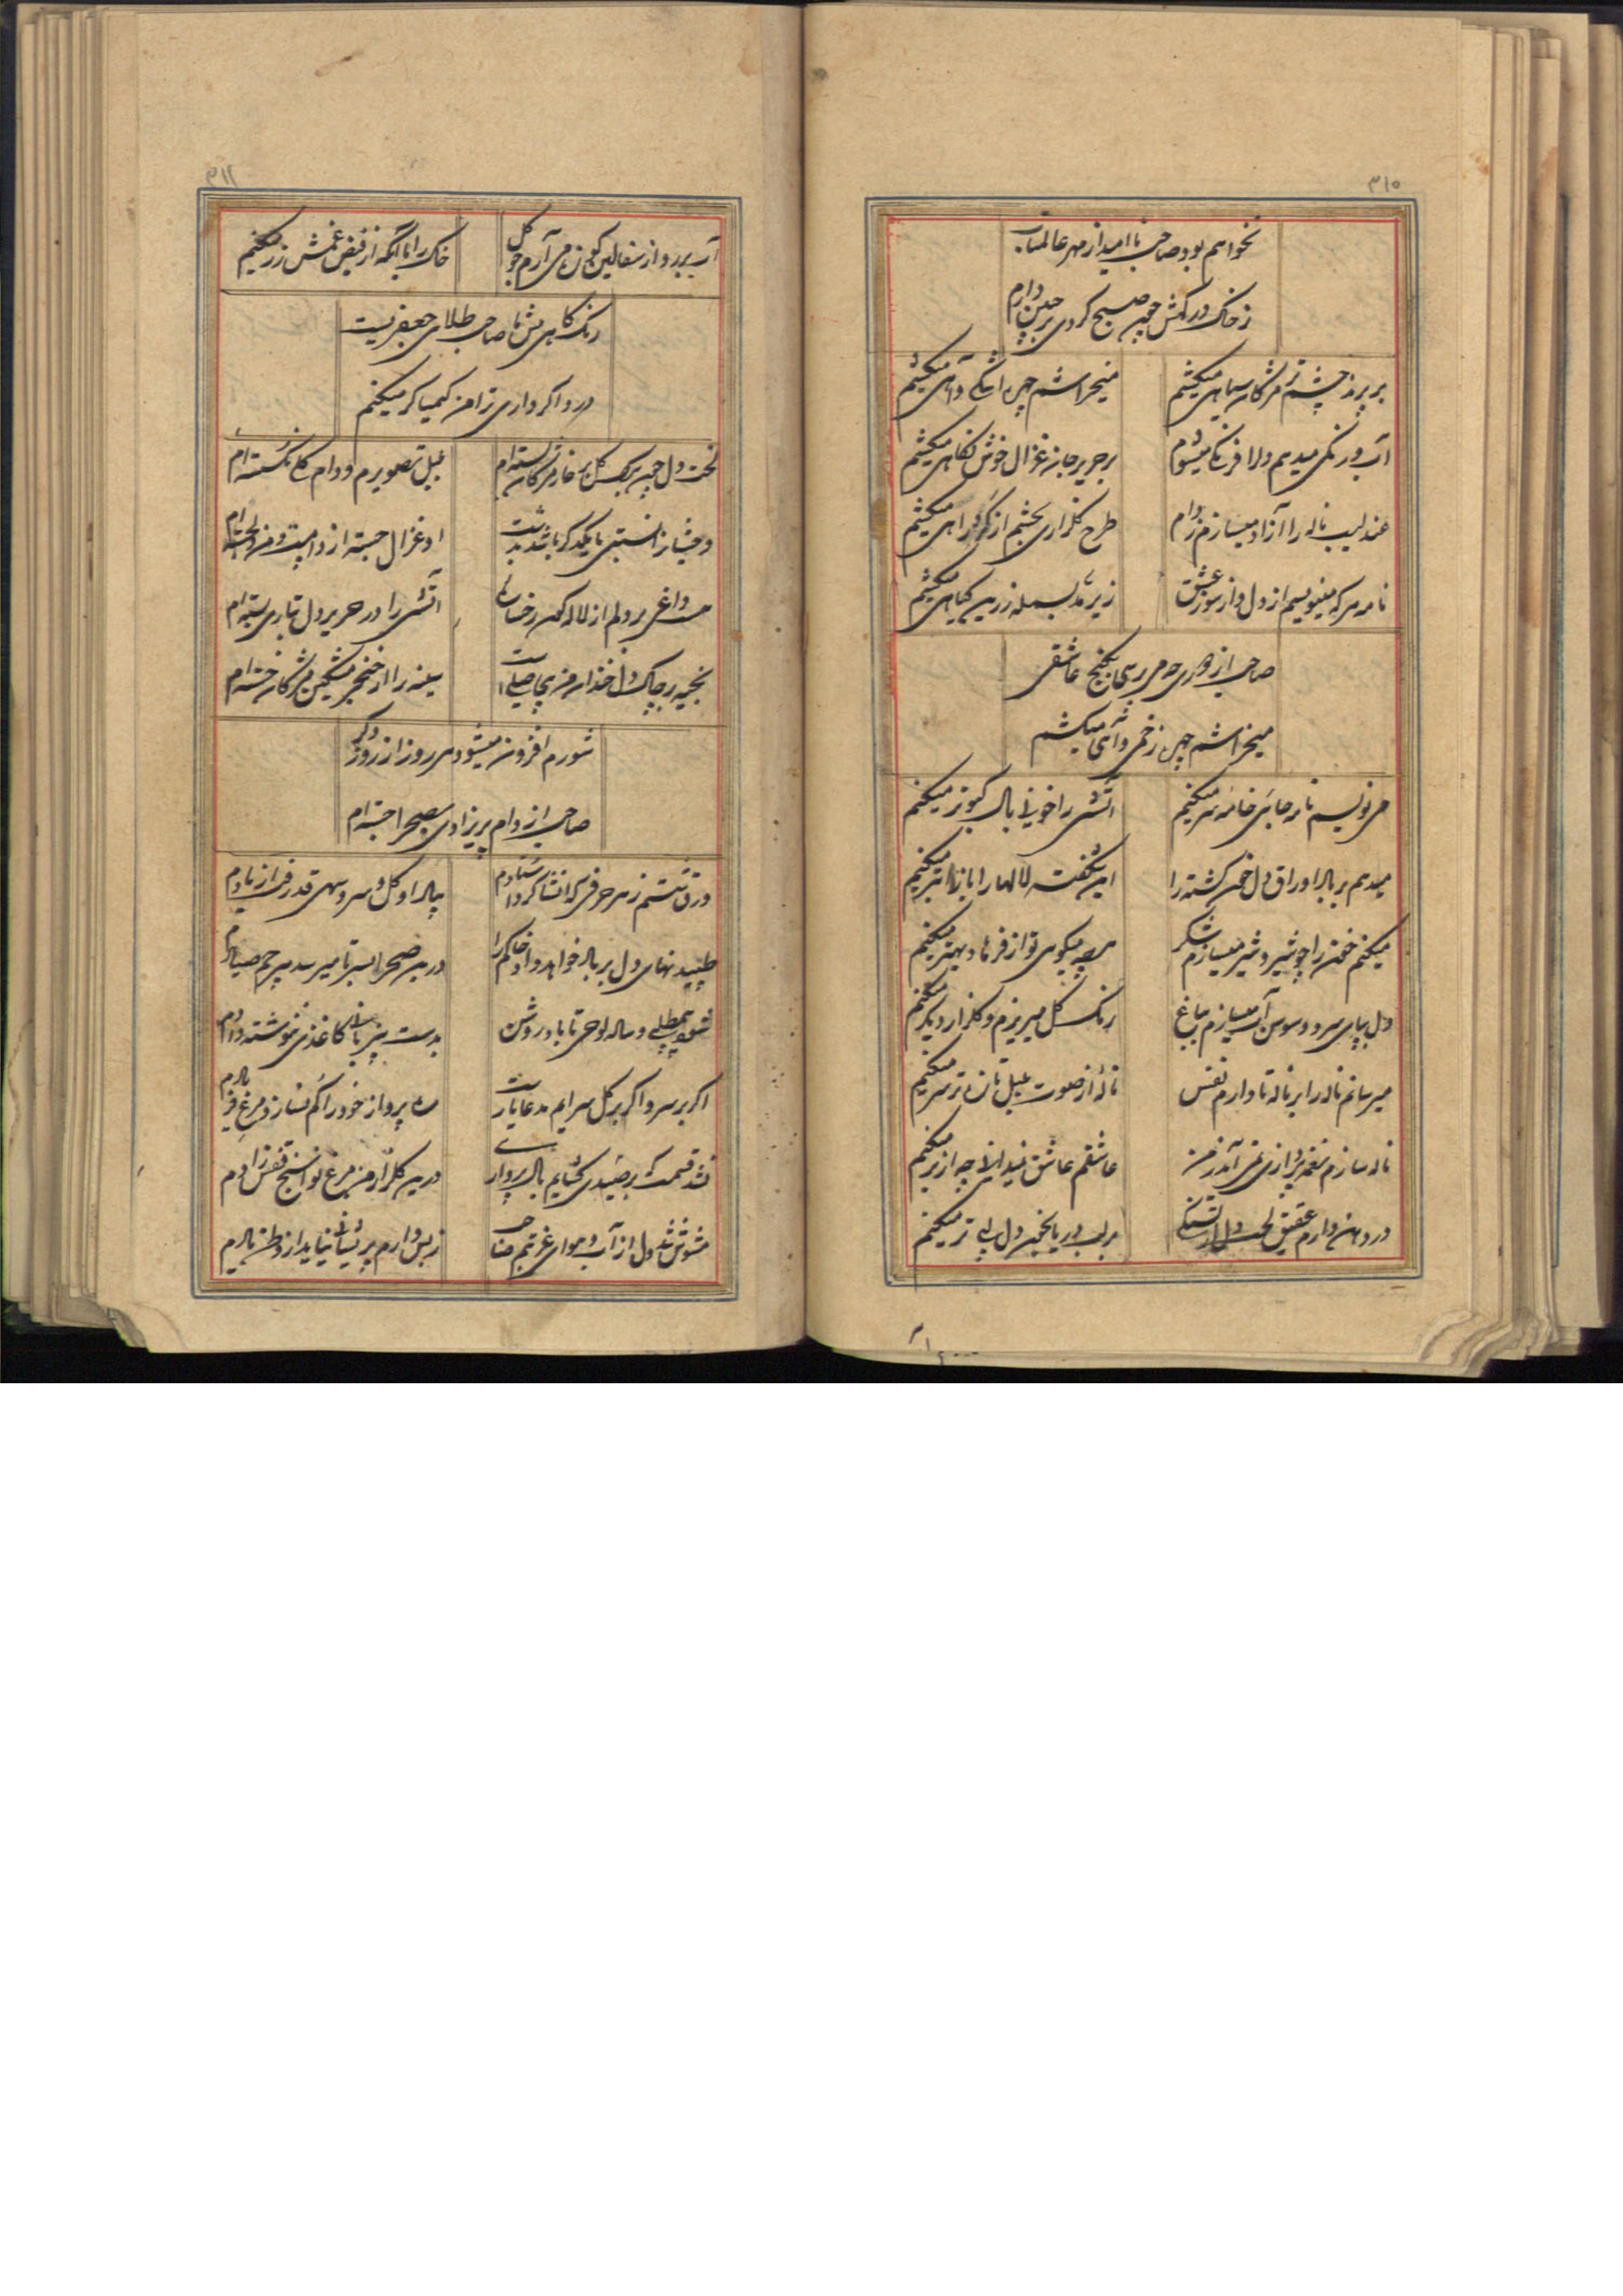 ۳۱۵
نخواهم بود صاحب ناامید از مهر عالمتاب
ز خاک درکهش چون صبح کردی بر جبین دارم
بر پرند چشم تر مژکان سیاهی میکشم
میخراشم چهره اشکی و آهی میکشم
آب و رنکی میدهم دل را فرنکی میشوم
بر حریر جان غزال خوش نکاهی میکشم
عندلیب ناله را آزاد میسازم ز دام
طرح کلزاری بچشم از کرد راهی میکشم
نامه هر که مینویسم از دل و از سوز عشق
زیر مد بسمله زرین کیاهی میکشم
صاحب از دوری چو می رسی بکنج عاشقی
میخراشم چهره زخمی و آهی میکشم
می نویسم نامه جای خامه سر میکنم
آتشی را خونی بال کبوتر میکنم
میدهم بر باد اوراق دل خون کشته را
این شکفته لالها را باز ابتر میکنم
میکنم خون را چو شیر و شیر میسازم شکر
هر چه میکوی تو از فرهاد بهتر میکنم
دل بپای سرو و سوسن آب میسازم بباغ
رنک کل میریزم و کلزار دیکر میکنم
میرسانم ناله را بر ناله تا دارم نفس
ناله از صوت بلبل تازه تر سر میکنم
ناله سازم نغمه پردازی نمی آید ز من
عاشقم عاشق نمیدانی چه از بر میکنم
در دهن دارم عقیق لخت دل از تشنکی
بر لب دریا بخون دل لبی تر میکنم
۳۱۶
آب بر رو از سفالین کوزه می آرم چو کل
خاک را با آنکه از فیض غمش زر میکنم
رنک کاهی پیش ما صاحب طلای جعفریست
درد اکر داری ترا من کیمیاکر میکنم
لخت دل چون برک کل بر خار مژکان بسته ام
بلبل تصویرم و دام کل نکسسته ام
وحشیان را نسبتی با یکدکر باشد بدشت
او غزال جسته از دامست و من وارسته ام
هست داغی بر دلم از لاله کون رخسار
آتشی را در حریر دل بتاری بسته ام
بخیه بر چاک دل خندان من بیحاصلیست
سینه را از خنجر مشکین مژکان خسته ام
شورم افزون میشود هر روز از روز دکر
صاحب از دام پریزادی بصحرا جسته ام
ورق شستم ز هر حرفی که انشا کرد استادم
چها داد کل و سرو سهی قد رفت از یادم
طپیدنهای دل بر باد خواهد داد خاکم را
درین صحرا بسر تا میرسد بیرحم صیادم
بدست بی زبانی کاغذی ننوشته دادم
اکر بر سرو اکر بر کل سرایم مدعا یارست
ره پرواز خود را کم نسازد مرغ فریادم
نشد قسمت که بر صیدی کشایم بال پروازی
درین کلزار من مرغ نواسنج قفس زادم
مشوش شد دل از آب و هوای غربتم صاحب
ز بس دارم پریشانی نیاید از وطن یادم